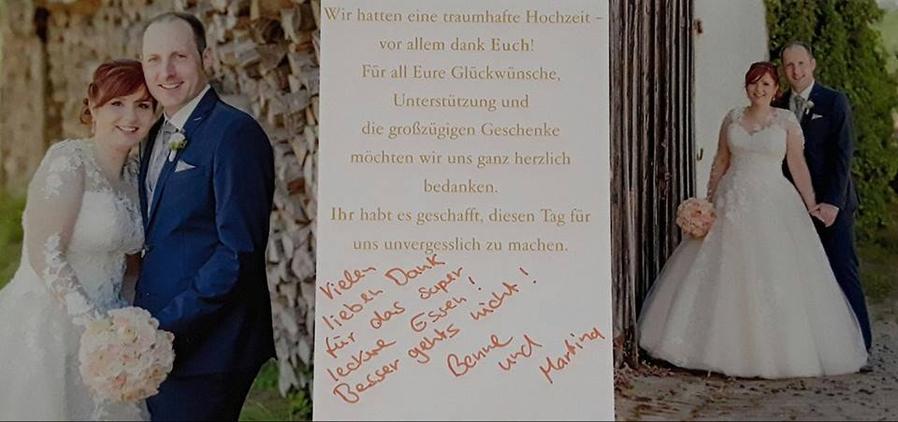 Wir hatten eine traumhafte Hochzeit –
vor allem dank Euch!
Für all Eure Glückwünsche,
Unterstützung und
die großzügigen Geschenke
möchten wir uns ganz herzlich
bedanken.
Ihr habt es geschafft, diesen Tag für
uns unvergesslich zu machen.
Vielen
lieben Dank
für das super
leckere Essen!
Besser gehts nicht!
Benne
und
Martina